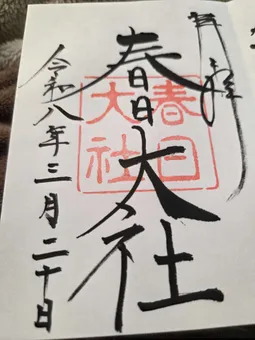 奉拝
春日大社
春日
大社
令和八年三月二十日